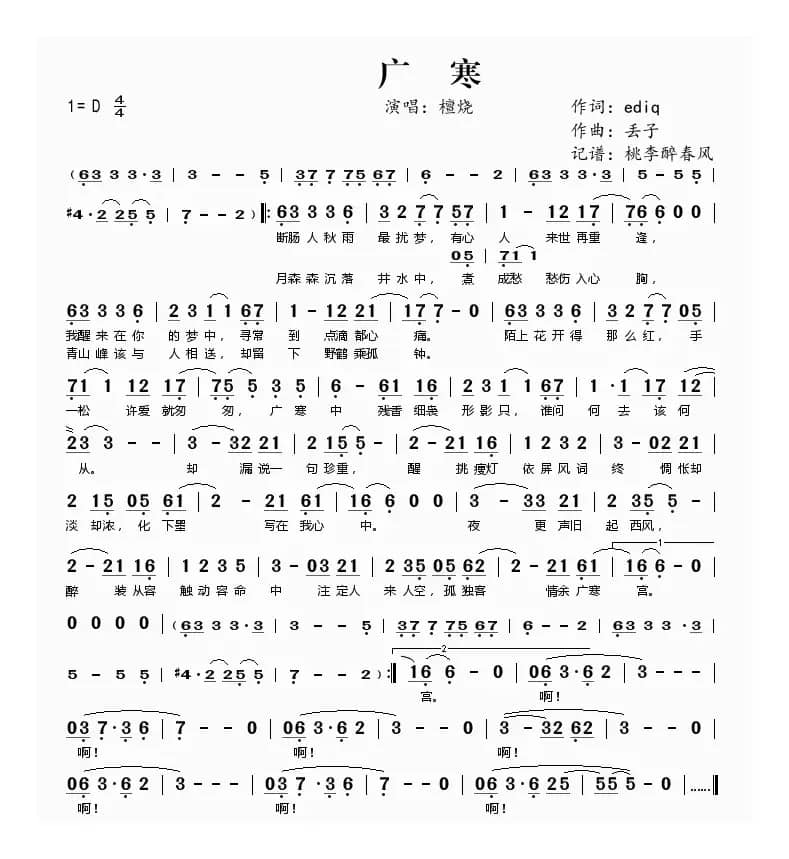 广 寒
1= D 4/4 演唱：檀烧 作词：ediq
作曲：丢子
记谱：桃李醉春风
(63 3 3·3 | 3 - - 5 | 37 7 75 67 | 6 - - 2 | 63 3 3·3 | 5 - 5 5
#4·2 25 5 | 7 - - 2 ) ‖: 63 3 3 6 | 3 2 7 7 57 | 1 - 12 17 | 76 6 0 0
断肠 人 秋 雨 最 扰 梦， 有心 人 来世 再重 逢，
05 | 71 1
月森 森 沉 落 井 水 中， 煮 成愁 愁伤 入心 胸，
63 3 3 6 | 2 3 1 1 67 | 1 - 12 21 | 17 7 - 0 | 63 3 3 6 | 3 2 7 7 05 |
我醒 来 在 你 的 梦 中， 寻常 到 点滴 都心 痛。 陌上 花 开 得 那 么 红， 手
青山 峰 该 与 人 相 送， 却留 下 野鹤 乘孤 钟。
71 1 12 17 | 75 5 3 5 | 6 - 61 16 | 2 3 1 1 67 | 1·1 17 12 |
一松 许爱 就匆 匆， 广 寒 中 残香 细袅 形 影 只， 谁问 何 去 该 何
23 3 - - | 3 - 32 21 | 2 15 5 - | 2 - 21 16 | 1 2 3 2 | 3 - 02 21 |
从。 却 漏 说一 句 珍重， 醒 挑 瘦灯 依 屏 风 词 终 惆 怅却
2 15 05 61 | 2 - 21 61 | 16 6 0 0 | 3 - 33 21 | 2 35 5 -
淡 却浓， 化 下墨 写在 我心 中。 夜 更 声旧 起 西风，
1
2 - 21 16 | 1 2 3 5 | 3 - 03 21 | 2 35 05 62 | 2 - 21 61 | 16 6 - 0
醉 装 从容 触 动 容 命 中 注 定人 来 人空， 孤 独客 情余 广寒 宫。
0 0 0 0 | (63 3 3·3 | 3 - - 5 | 37 7 75 67 | 6 - - 2 | 63 3 3·3 |
2
5 - 5 5 | #4·2 25 5 | 7 - - 2) :‖ 16 6 - 0 | 06 3·6 2 | 3 - - - |
宫。 啊！
03 7·3 6 | 7 - - 0 | 06 3·6 2 | 3 - - 0 | 3 - 32 62 | 3 - - 0 |
啊！ 啊！ 啊！
06 3·6 2 | 3 - - - | 03 7·3 6 | 7 - - 0 | 06 3·6 25 | 55 5 - 0 |……‖
啊！ 啊！ 啊！